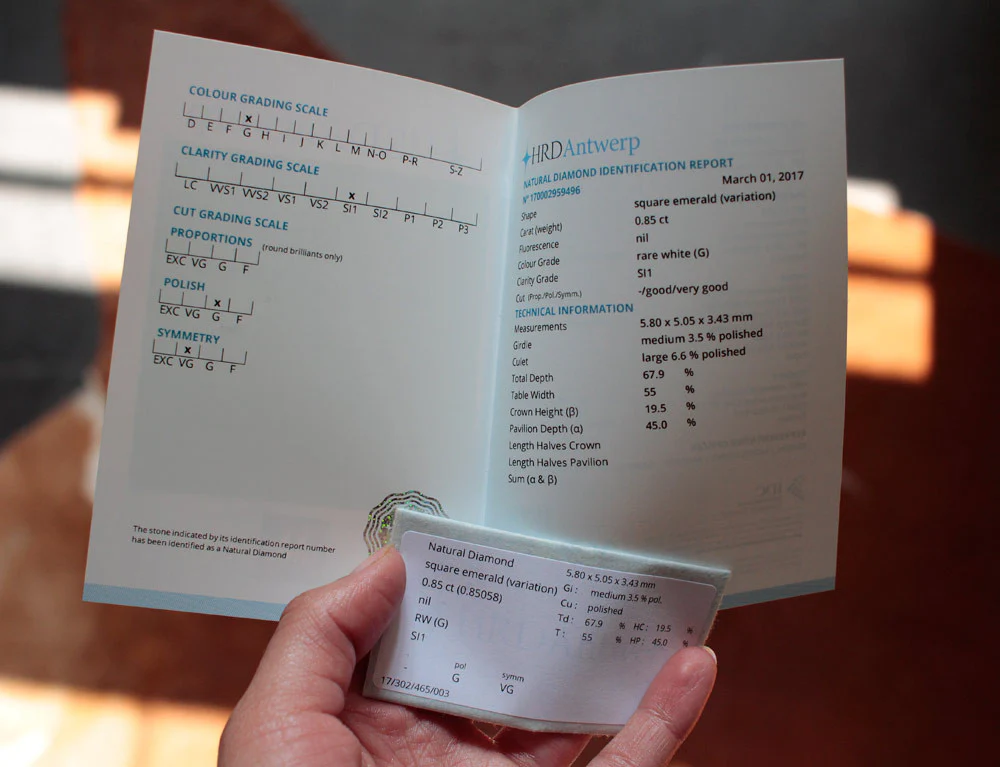 COLOUR GRADING SCALE
x
D E F G H I J K L M N-O P-R S-Z
CLARITY GRADING SCALE
x
LC VVS1 VVS2 VS1 VS2 SI1 SI2 P1 P2 P3
CUT GRADING SCALE
PROPORTIONS (round brilliants only)
EXC VG G F
POLISH
x
EXC VG G F
SYMMETRY
x
EXC VG G F
The stone indicated by its identification report number
has been identified as a Natural Diamond
HRDAntwerp
NATURAL DIAMOND IDENTIFICATION REPORT
N° 170002959496 March 01, 2017
Shape square emerald (variation)
Carat (weight) 0.85 ct
Fluorescence nil
Colour Grade rare white (G)
Clarity Grade SI1
Cut (Prop./Pol./Symm.) -/good/very good
TECHNICAL INFORMATION
Measurements 5.80 x 5.05 x 3.43 mm
Girdle medium 3.5 % polished
Culet large 6.6 % polished
Total Depth 67.9 %
Table Width 55 %
Crown Height (β) 19.5 %
Pavilion Depth (α) 45.0 %
Length Halves Crown
Length Halves Pavilion
Sum (α & β)
Natural Diamond
square emerald (variation)
0.85 ct (0.85058)
nil
RW (G)
SI1
- pol symm
G VG
17/302/465/003
5.80 x 5.05 x 3.43 mm
Gi : medium 3.5 % pol.
Cu : polished
Td : 67.9 % HC : 19.5 %
T : 55 % HP : 45.0 %